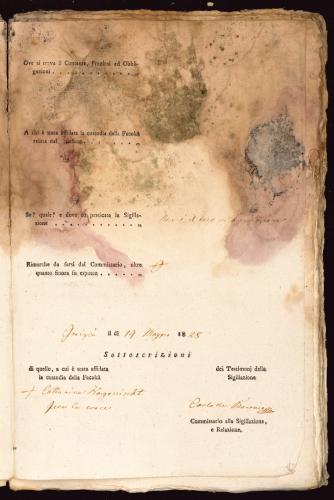 Ove si trova il Contante, Preziosi ed Obbli-
gazioni . . . . . . . . . . „
A cui è stata affidata la custodia della Facoltà
relitta dal defunto . . . . . . . „
Se? quale? e dove sia praticata la Sigilla-
zione . . . . . . . . . . „
Rimarche da farsi dal Commissario, oltre
quanto finora fu esposto . . . . . „
il dì 14 Maggio 1828
Sottoscrizioni
di quello, a cui è stata affidata
la custodia della Facoltà
dei Testimonj della
Sigillazione
+ Catterina
Commissario alla Sigillazione,
e Relazione.